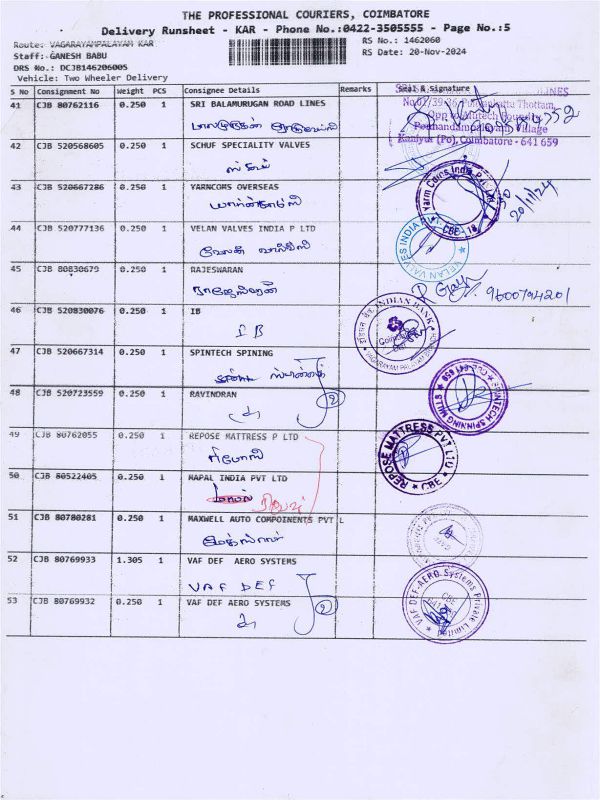 THE PROFESSIONAL COURIERS, COIMBATORE
Delivery Runsheet - KAR - Phone No.:0422-3505555 - Page No.:5
Route: VAGARAYAMPALAYAM KAR
RS No.: 1462060
Staff: GANESH BABU
RS Date: 20-Nov-2024
DRS No.: DCJB146206005
Vehicle: Two Wheeler Delivery
S No Consignment No Weight PCS Consignee Details Remarks Seal & Signature
41 CJB 80762116 0.250 1 SRI BALAMURUGAN ROAD LINES
42 CJB 520568605 0.250 1 SCHUF SPECIALITY VALVES
43 CJB 520667286 0.250 1 YARNCOMS OVERSEAS
20/11/24
44 CJB 520777136 0.250 1 VELAN VALVES INDIA P LTD
VELAN VALVES INDIA
45 CJB 80830679 0.250 1 RAJESWARAN
ராஜேஸ்வரன்
9600794201
46 CJB 520830076 0.250 1 IB
IB
INDIAN BANK
VAGARAYAM PALAYAM
47 CJB 520667314 0.250 1 SPINTECH SPINING
SPINTECH SPINNING MILLS
48 CJB 520723559 0.250 1 RAVINDRAN
2
49 CJB 80762055 0.250 1 REPOSE MATTRESS P LTD
ரிபோஸ்
REPOSE MATTRESS PVT LTD
CBE
50 CJB 80522405 0.250 1 MAPAL INDIA PVT LTD
51 CJB 80780281 0.250 1 MAXWELL AUTO COMPOINENTS PVT L
52 CJB 80769933 1.305 1 VAF DEF AERO SYSTEMS
VAF DEF
53 CJB 80769932 0.250 1 VAF DEF AERO SYSTEMS
2
VAF DEF-AERO Systems Private Limited